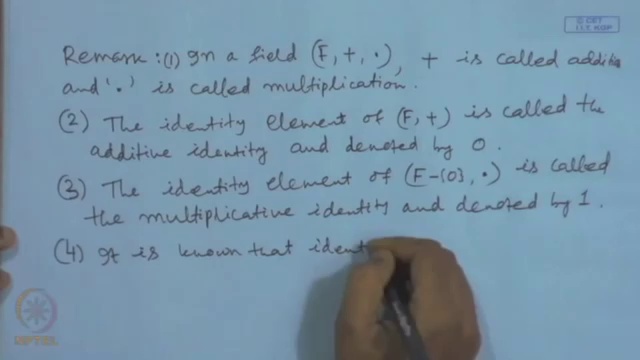 © CET
I.I.T. KGP
Remark: (1) In a field (F, +, ·), + is called additio
and '·' is called multiplication.
(2) The identity element of (F, +) is called the
additive identity and denoted by 0.
(3) The identity element of (F-{0}, ·) is called
the multiplicative identity and denoted by 1.
(4) It is known that ident
NPTEL